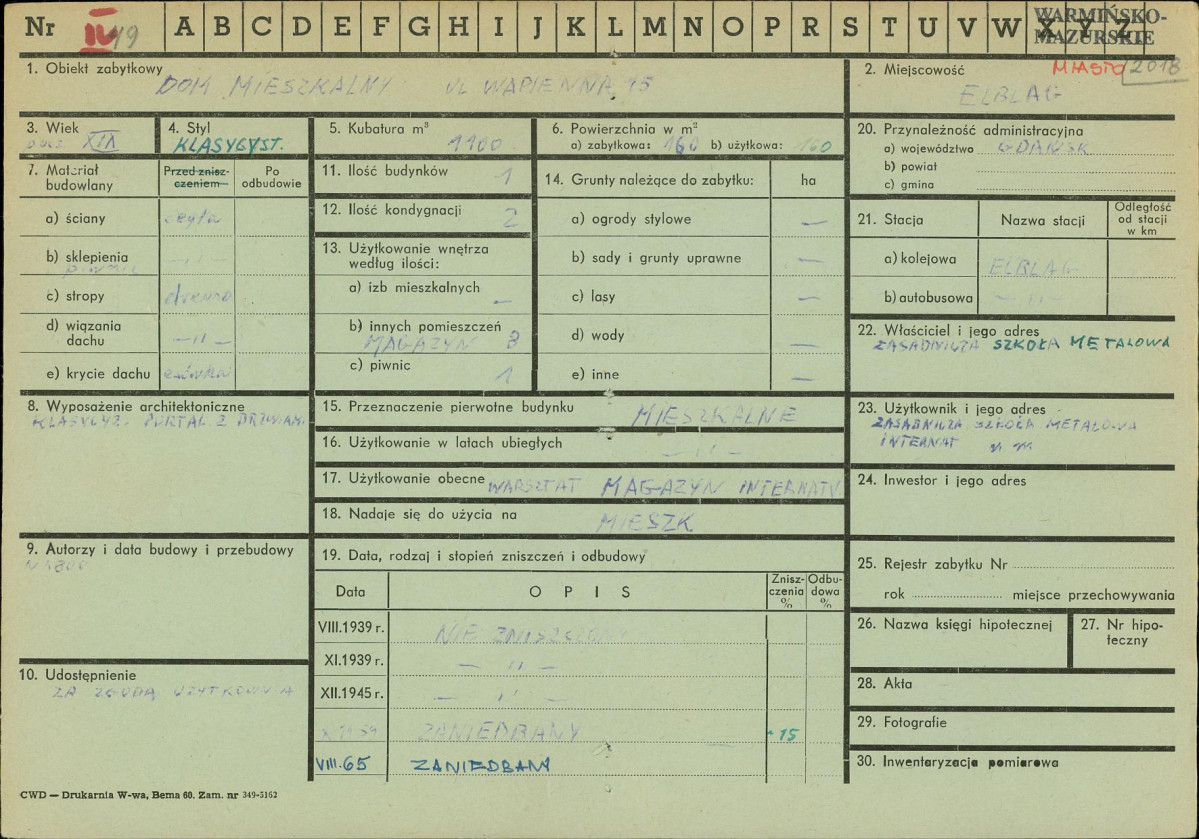 Nr IV 49 A B C D E F G H I J K L M N O P R S T U V W X Y Z
WARMIŃSKO-
MAZURSKIE
1. Obiekt zabytkowy
DOM MIESZKALNY UL WAPIENNA 15
2. Miejscowość
MIASTO 2018
ELBLĄG
3. Wiek
XIX
4. Styl
KLASYCYST.
5. Kubatura m³
1100
6. Powierzchnia w m²
a) zabytkowa: 160 b) użytkowa: 160
20. Przynależność administracyjna
a) województwo GDAŃSK
b) powiat
c) gmina
7. Materiał budowlany
Przed zniszczeniem
Po odbudowie
a) ściany cegła
b) sklepienia — " —
piwnic
c) stropy drewno
d) wiązania dachu — " —
e) krycie dachu
11. Ilość budynków 1
12. Ilość kondygnacji 2
13. Użytkowanie wnętrza według ilości:
a) izb mieszkalnych —
b) innych pomieszczeń
MAGAZYN 8
c) piwnic 1
14. Grunty należące do zabytku: ha
a) ogrody stylowe —
b) sady i grunty uprawne —
c) lasy —
d) wody —
e) inne —
21. Stacja
Nazwa stacji
Odległość od stacji w km
a) kolejowa ELBLĄG
b) autobusowa — " —
22. Właściciel i jego adres
ZASADNICZA SZKOŁA METALOWA
8. Wyposażenie architektoniczne
KLASYCYZ. PORTAL Z DRZWIAMI
15. Przeznaczenie pierwotne budynku MIESZKALNE
16. Użytkowanie w latach ubiegłych — " —
17. Użytkowanie obecne WARSZTAT MAGAZYN INTERNATU
18. Nadaje się do użycia na MIESZK
23. Użytkownik i jego adres
ZASADNICZA SZKOŁA METALOWA
INTERNAT
24. Inwestor i jego adres
9. Autorzy i data budowy i przebudowy
N 1800
19. Data, rodzaj i stopień zniszczeń i odbudowy
Data
OPIS
Zniszczenia %
Odbudowa %
VIII.1939 r. NIE ZNISZCZONY
XI.1939 r. — " —
XII.1945 r. — " —
X 1959 ZANIEDBANY 15
VIII.65 ZANIEDBANY
25. Rejestr zabytku Nr
rok miejsce przechowywania
26. Nazwa księgi hipotecznej
27. Nr hipoteczny
10. Udostępnienie
ZA ZGODĄ UŻYTKOWNIKA
28. Akta
29. Fotografie
30. Inwentaryzacja pomiarowa
CWD — Drukarnia W-wa, Bema 60. Zam. nr 349-5162